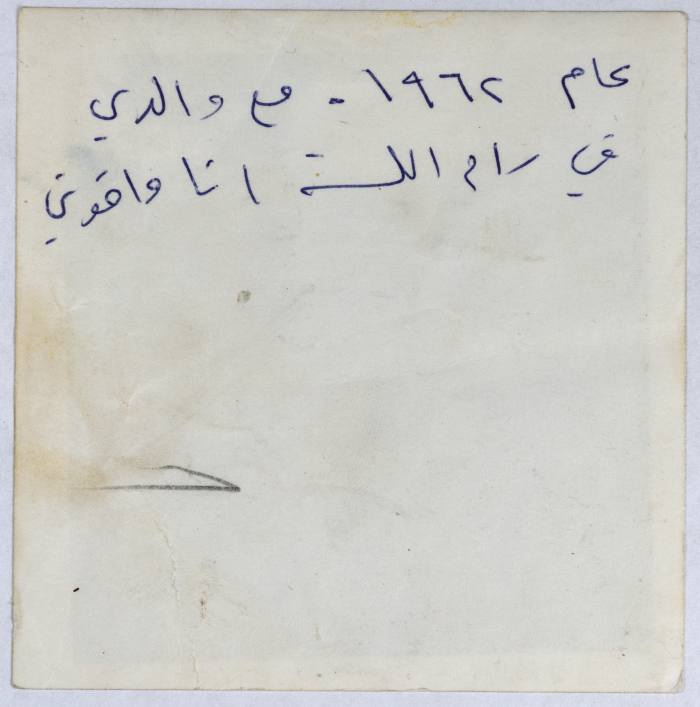 عام ١٩٦٢ - مع والدي
في رام الله انا واخوتي